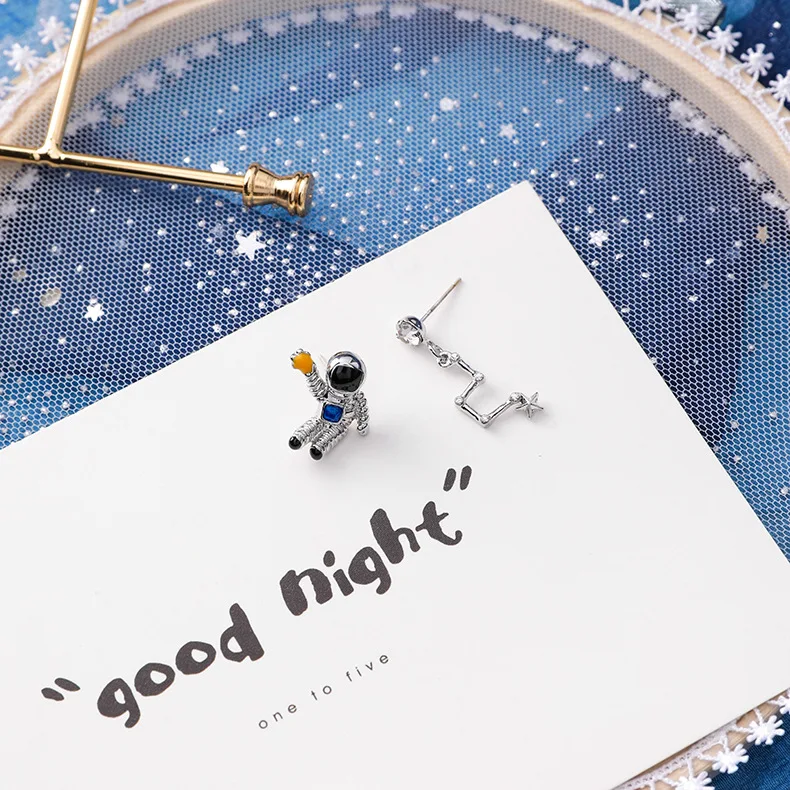 “good night”
one to five